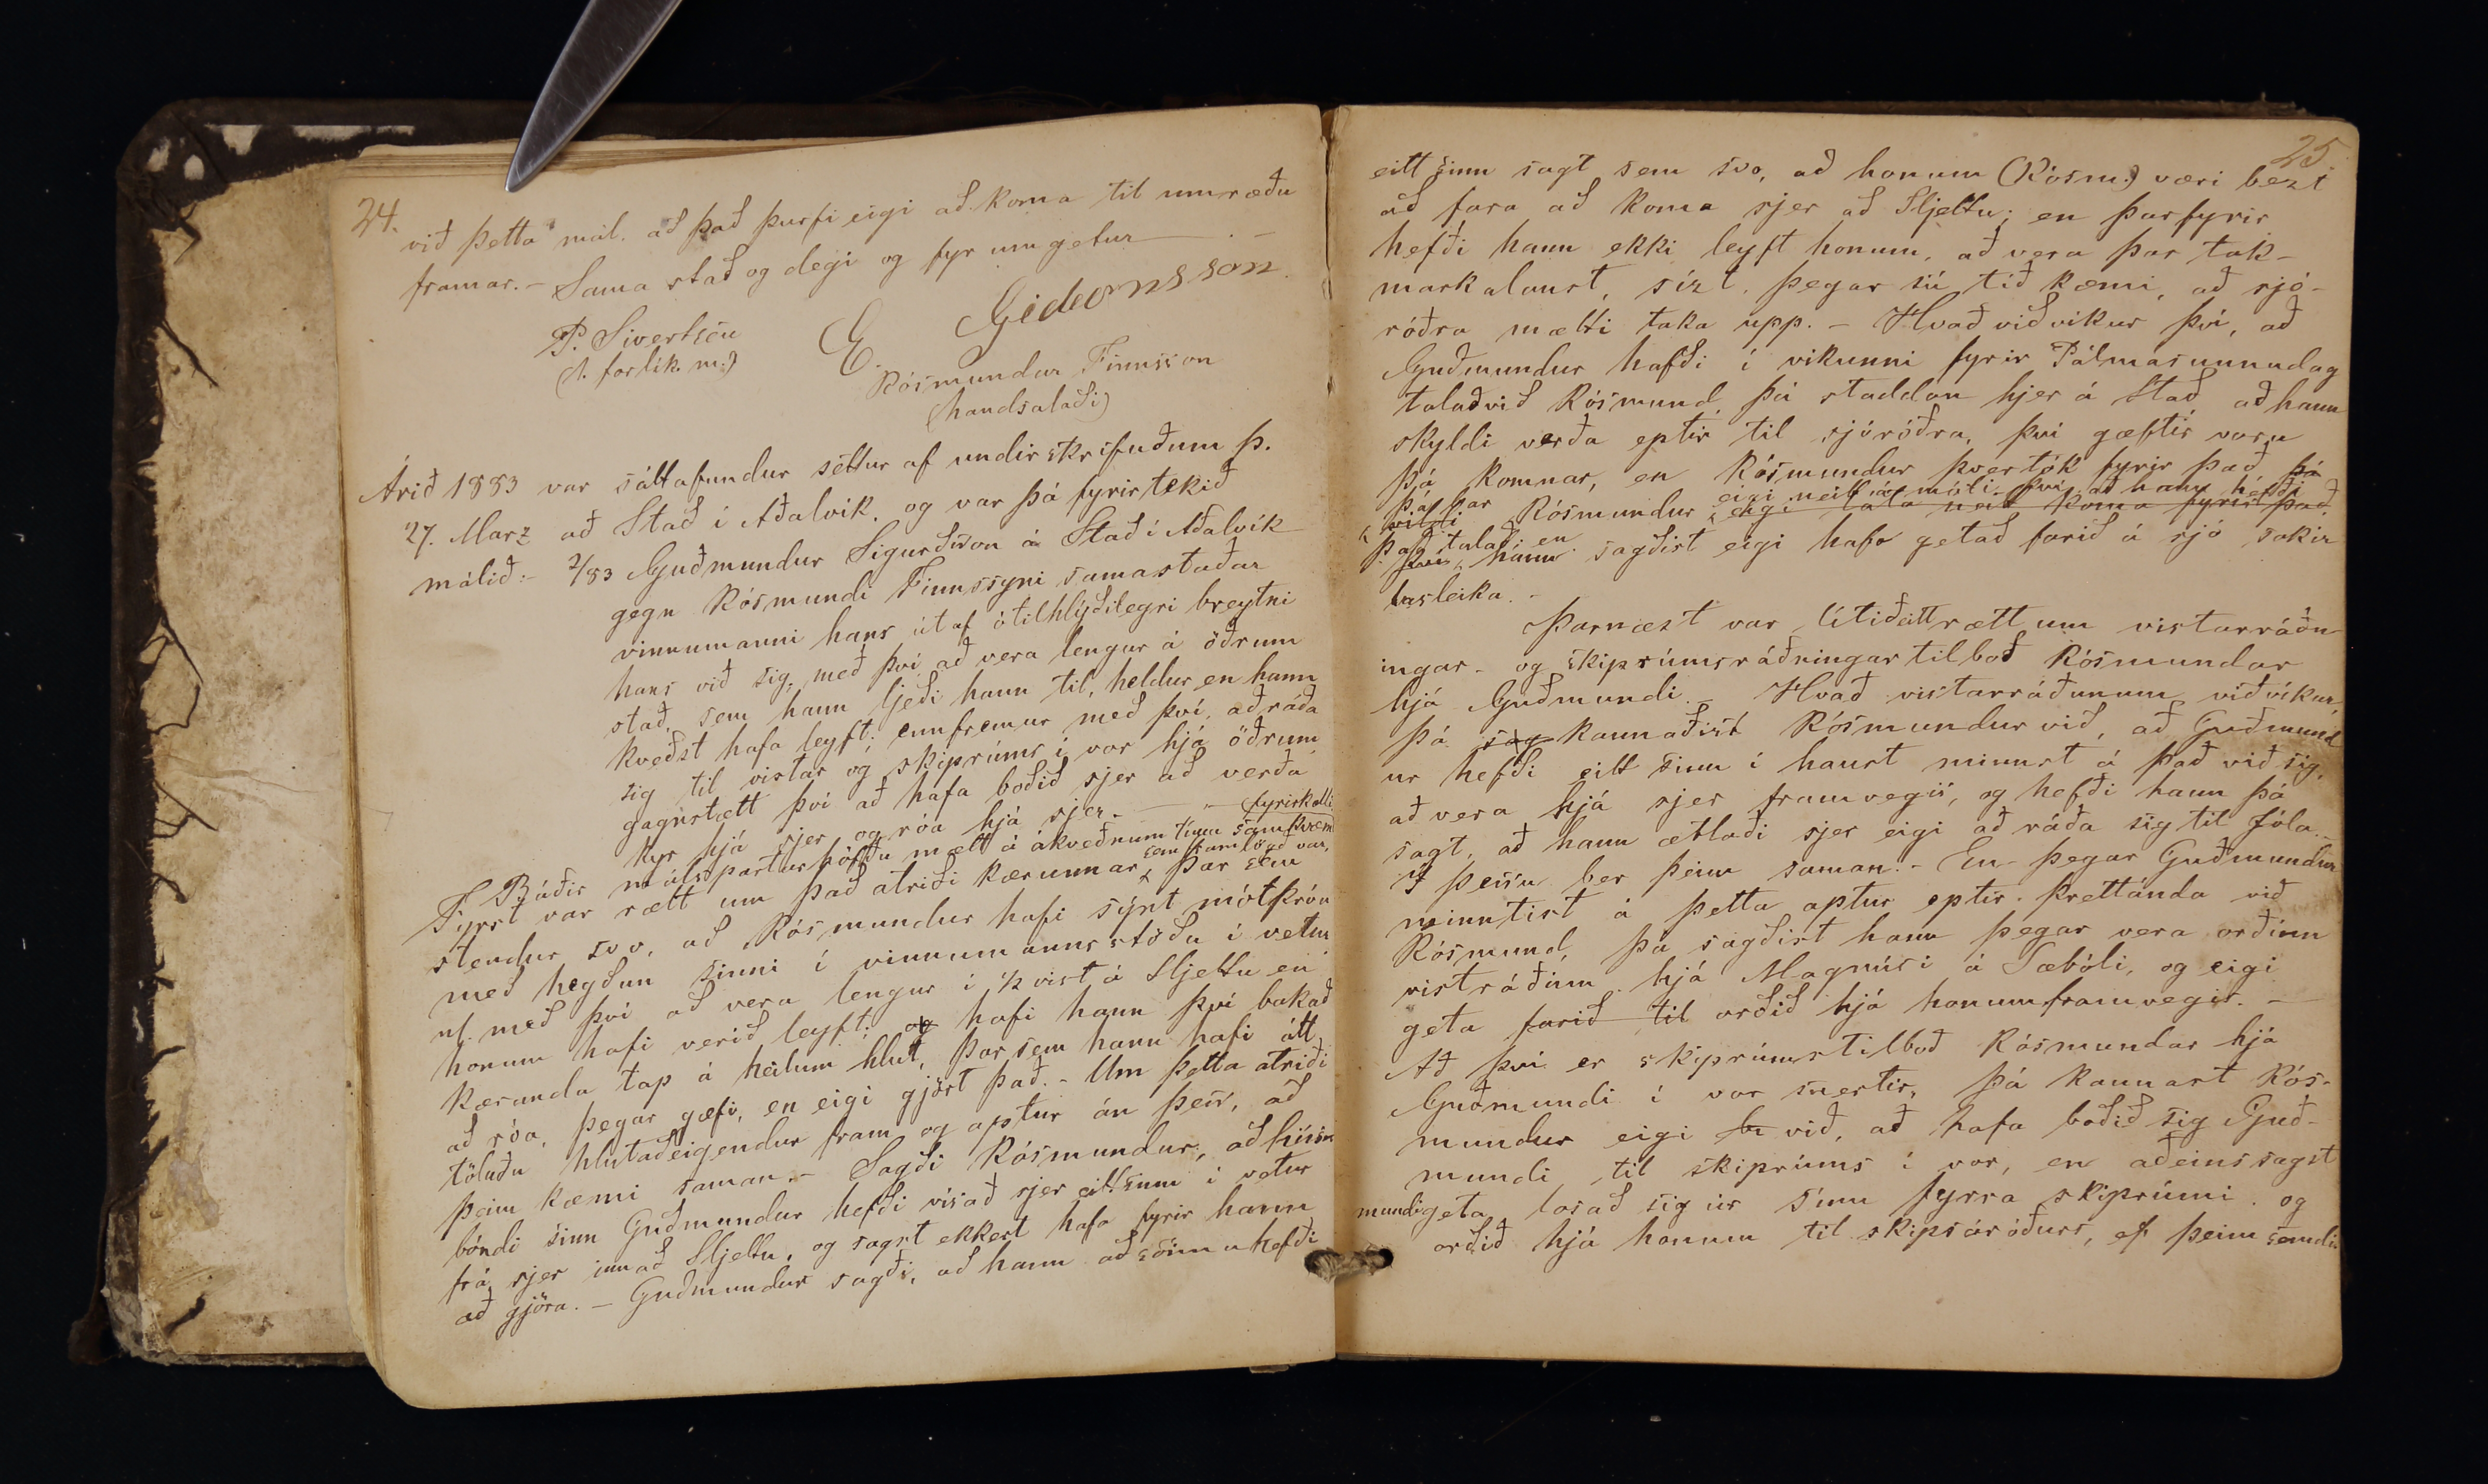 24.
við þetta mál. að það þurfi eigi að koma til umræðu
framar. - Sama stað og degi og fyr umgetur
P. Sivertsen
(1. forlík. m:)
E. Gideonsson.
Rósmundur Finnsson
(handsalaði)
Árið 1883 var sáttafundur settur af undirskrifuðum þ.
27. Marz að Stað í Aðalvík, og var þá fyrirtekið
málið:- 2/83 Guðmundur Sigurðsson á Stað í Aðalvík
gegn Rósmundi Finnssyni samastaðar
vinnumanni hans útaf ótilhlýðilegri breytni
hans við sig, með því að vera lengur á öðrum
stað, sem hann ljeði hann til, heldur en hann
kveðst hafa leyft; ennfremur með því, að ráða
sig til vistar og skiprúms í vor hjá öðrum
gagnstætt því að hafa boðið sjer að verða
kyr hjá sjer og róa hjá sjer. -
Báðir málspartur höfðu mætt á ákveðnum tíma samkvæmt fyrirkalli
Fyrst var rætt um það atriði kærunnar, sem framlögð var, þar sem
stendur svo, að Rósmundur hafi sýnt mótþróa
með hegðun sinni í vinnumannsstöðu í vetur
nl. með því að vera lengur í 1/2 vist á Sljettu en
honum hafi verið leyft; og hafi hann því bakað
kæranda tap á heilum hlut, þar sem hann hafi átt
að róa, þegar gæfi, en eigi gjört það. - Um þetta atriði
töluðu hlutaðeigendur fram og aptur án þess, að
þeim kæmi saman. - Sagði Rósmundur, að húsbóndi
bóndi sinn Guðmundur hefði vísað sjer eitt sinn í vetur
frá sjer innað Sljettu, og sagst ekkert hafa fyrir hann
að gjöra. - Guðmundur sagði, að hann að sönnu hefði
25.
eitt sinn sagt sem svo, að honum (Rósm:) væri bezt
að fara að koma sjer að Sljettu; en þarfyrir
hefði hann ekki leyft honum, að vera þar tak-
markalaust, sízt, þegar sú tíð kæmi, að sjó-
róðra mætti taka upp. - Hvað viðvíkur því, að
Guðmundur hafði í vikunni fyrir Pálmasunnudag
talað við Rósmund þá staddan hjer á Stað að hann
skyldi verða eptir til sjóróðra, því gæftir voru
þá komnar, en Rósmundur þvertók fyrir það, þá
þá bar Rósmundur eigi neitt á móti því, að hann hefði
vildi eigi láta neit koma fyrir það.
það talað; en hann sagðist eigi hafa getað farið á sjó sakir
lasleika. -
Þarnæst var lítið eitt rætt um vistarráðn-
ingar- og skiprúmsráðningartilboð Rósmundar
hjá Guðmundi. - Hvað vistarráðunum viðvíkur,
þá sag kannaðist Rósmundur við, að Guðmund
ur hefði eitt sinn í haust minnst á það við sig,
að vera hjá sjer framvegis, og hefði hann þá
sagt, að hann ætlaði sjer eigi að ráða sig til Jóla. -
Í þessu ber þeim saman. - En þegar Guðmundur
minntist á þetta aptur eptir þrettánda við
Rósmund, þá sagðist hann þegar vera orðinn
vistráðinn hjá Magnúsi á Sæbóli, og eigi
geta farið til orðið hjá honum framvegis. -
Að því er skiprúmstilboð Rósmundar hjá
Guðmundi í vor snertir, þá kannast Rós-
mundur eigi við, að hafa boðið sig Guð-
mundi, til skiprúms í vor, en aðeins sagst
mundi geta losað sig úr sínu fyrra skiprúmi og
orðið hjá honum til skipsáróðurs, ef þeim semdi